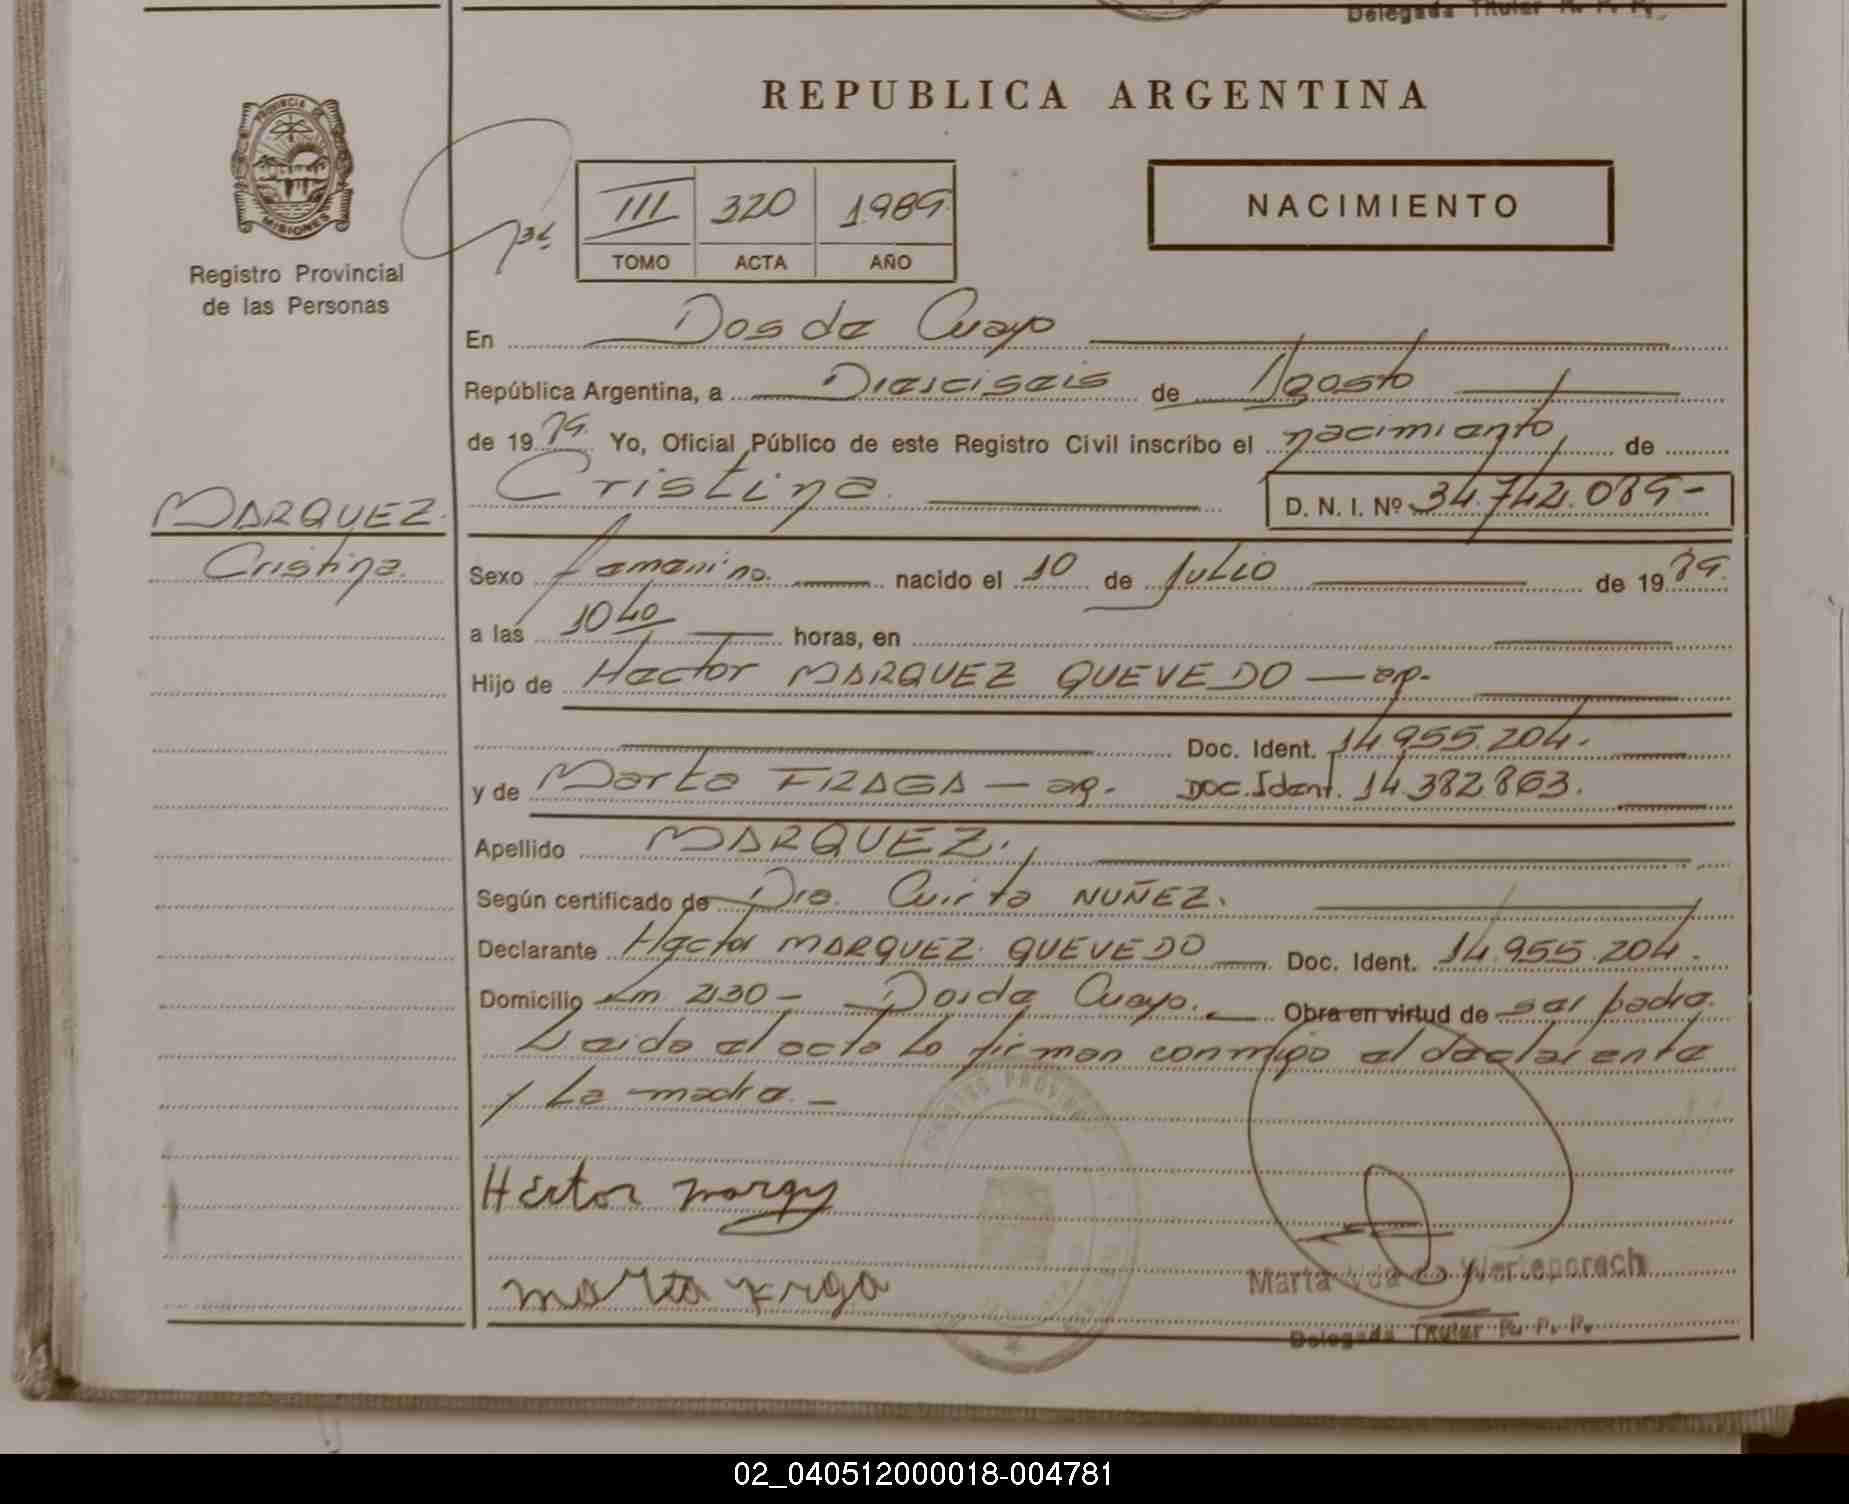 Delegada Titular R. P. P.
REPUBLICA ARGENTINA
PROVINCIA DE
MISIONES
Registro Provincial
de las Personas
III 320 1989
TOMO ACTA AÑO
NACIMIENTO
En Dos de Mayo
República Argentina, a Diesciseis de Agosto
de 1989. Yo, Oficial Público de este Registro Civil inscribo el nacimiento de
Cristina.
D. N. I. Nº 34.742.089-
MARQUEZ.
Cristina.
Sexo femenino. nacido el 10 de Julio de 1989.
a las 10 40 horas, en
Hijo de Hector MARQUEZ QUEVEDO — ar.
Doc. Ident. 14.955.204.
y de Marta FRAGA — ar. Doc. Ident. 14.382.863.
Apellido MARQUEZ.
Según certificado de Dra. Mirta NUÑEZ.
Declarante Hector MARQUEZ QUEVEDO Doc. Ident. 14.955.204.
Domicilio Km 230 - Dos de Mayo. Obra en virtud de ser padre.
Leida el acta lo firman conmigo el declarante
y la madre. -
Hector
Marta
Marta Vda de
Delegada Titular R. P. P.
02_040512000018-004781